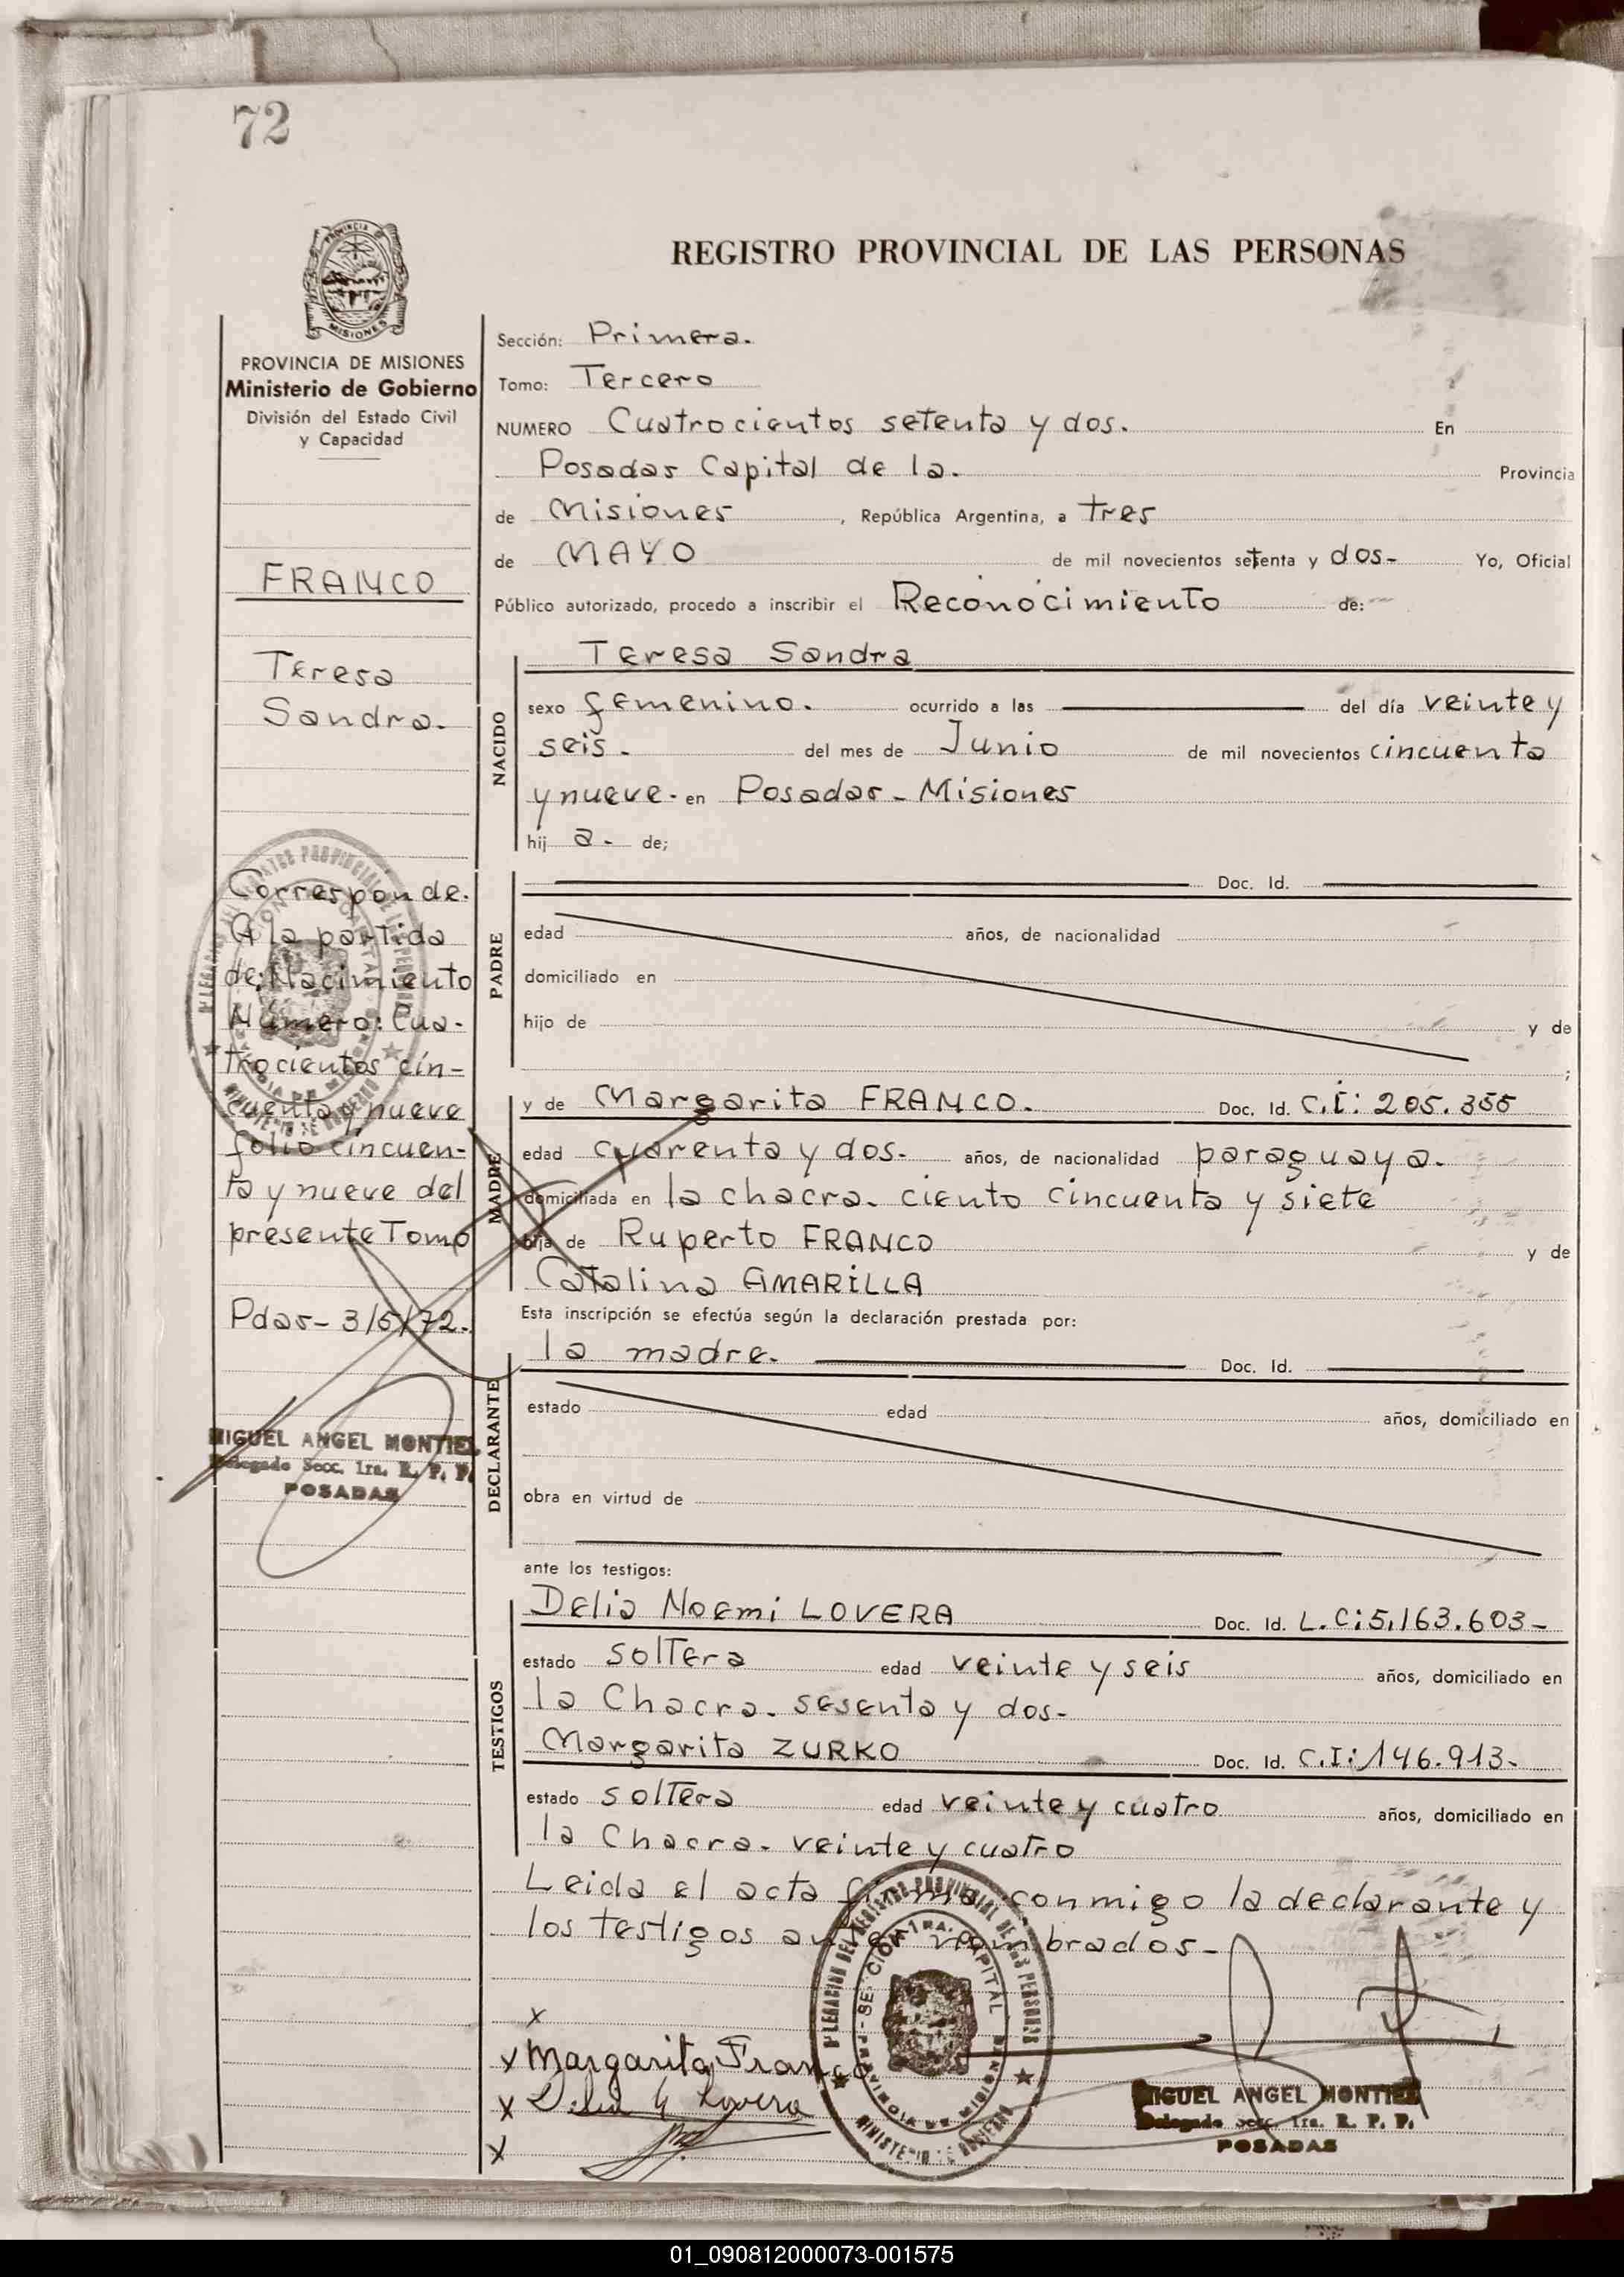 72
PROVINCIA
MISIONES
PROVINCIA DE MISIONES
Ministerio de Gobierno
División del Estado Civil
y Capacidad
FRANCO
Teresa
Sandra.
Corresponde.
A la partida
de: Nacimiento
Número: Cua-
trocientos cin-
cuenta y nueve
folio cincuen-
ta y nueve del
presente Tomo
Pdas- 3/5/72.
MIGUEL ANGEL MONTIEL
Delegado Secc. 1ra. R. P. P.
POSADAS
REGISTRO PROVINCIAL DE LAS PERSONAS
Sección: Primera.
Tomo: Tercero
NUMERO Cuatrocientos setenta y dos. En
Posadas Capital de la. Provincia
de Misiones, República Argentina, a tres
de MAYO de mil novecientos setenta y dos- Yo, Oficial
Público autorizado, procedo a inscribir el Reconocimiento de:
Teresa Sandra
NACIDO
sexo femenino. ocurrido a las del día veinte y
seis. del mes de Junio de mil novecientos cincuenta
y nueve. en Posadas - Misiones
hij a. de;
PADRE
Doc. Id.
edad años, de nacionalidad
domiciliado en
hijo de y de
;
MADRE
y de Margarita FRANCO. Doc. Id. C.I: 205.355
edad cuarenta y dos. años, de nacionalidad paraguaya.
domiciliada en la chacra. ciento cincuenta y siete
hija de Ruperto FRANCO y de
Catalina AMARILLA
Esta inscripción se efectúa según la declaración prestada por:
DECLARANTE
la madre. Doc. Id.
estado edad años, domiciliado en
obra en virtud de
ante los testigos:
TESTIGOS
Delia Noemi LOVERA Doc. Id. L.C:5.163.603-
estado soltera edad veinte y seis años, domiciliado en
la Chacra. sesenta y dos-
Margarita ZURKO Doc. Id. C.I:146.913-
estado soltera edad veinte y cuatro años, domiciliado en
la Chacra. veinte y cuatro
Leida el acta firma conmigo la declarante y
los testigos ante nombrados-
x
x Margarita Franco
x Delia Lovera
x
MIGUEL ANGEL MONTIEL
Delegado Secc. 1ra. R. P. P.
POSADAS
01_090812000073-001575